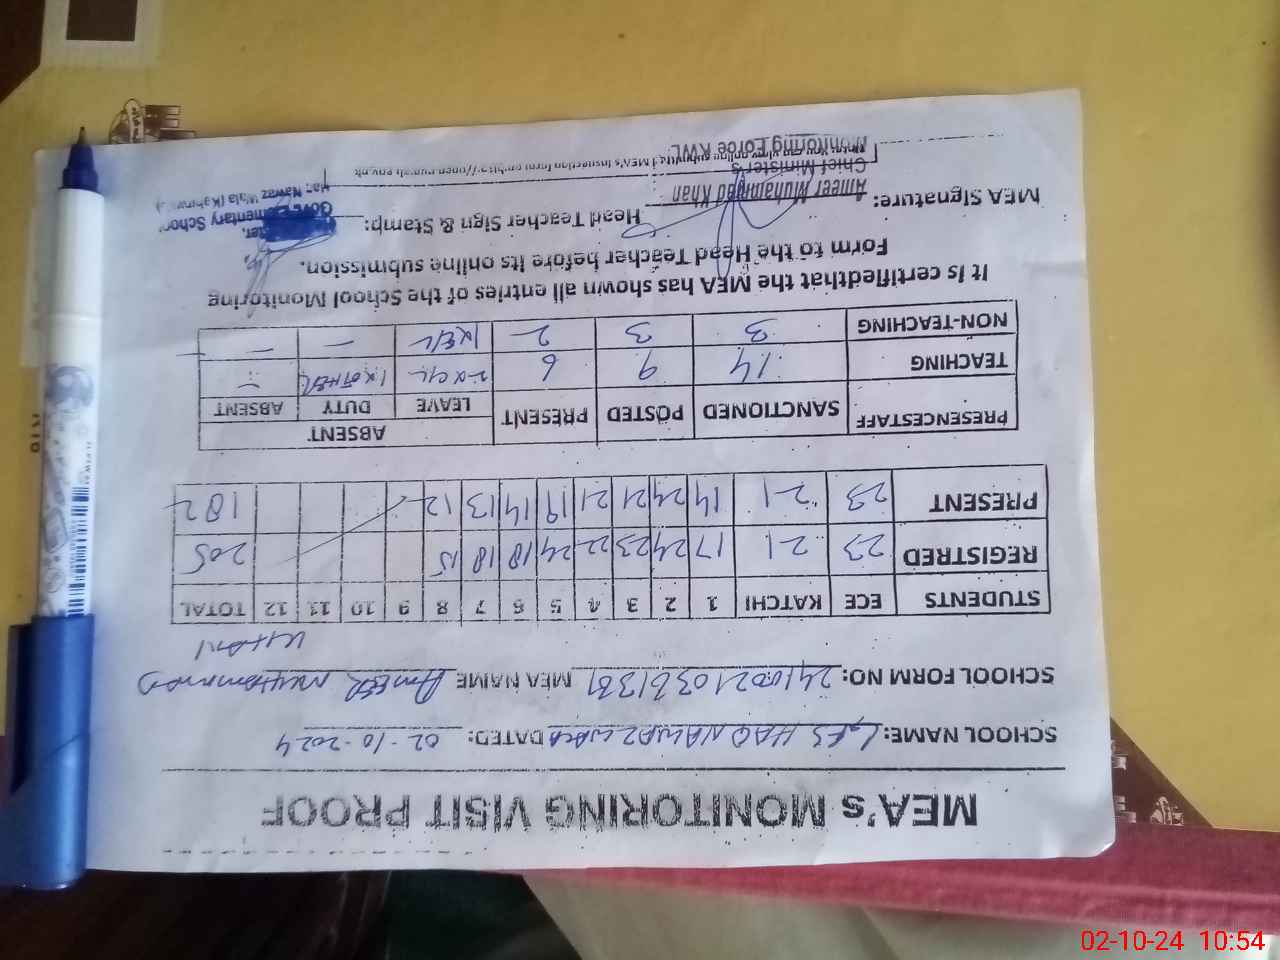 MEA's MONITORING VISIT PROOF
SCHOOL NAME: GES HAQ NAWAZ WALA DATED: 02-10-2024
SCHOOL FORM NO: MEA NAME AMEER MUHAMMAD
KHAN
STUDENTS ECE KATCHI 1 2 3 4 5 6 7 8 9 10 11 12 TOTAL
REGISTRED 23 21 17 24 23 22 24 18 18 15 205
PRESENT 23 21 14 24 21 21 19 14 13 12 182
PRESENCESTAFF SANCTIONED POSTED PRESENT ABSENT
LEAVE DUTY ABSENT
TEACHING 14 9 6 2xC/L 1xOTHER –
NON-TEACHING 3 3 2 1xE/L – –
It is certifiedthat the MEA has shown all entries of the School Monitoring
Form to the Head Teacher before its online submission.
MEA Signature: Head Teacher Sign & Stamp:
Ameer Muhammad Khan
Chief Minister's
Monitoring Force KWL
Govt. Elementary School
Haq Nawaz Wala
02-10-24 10:54